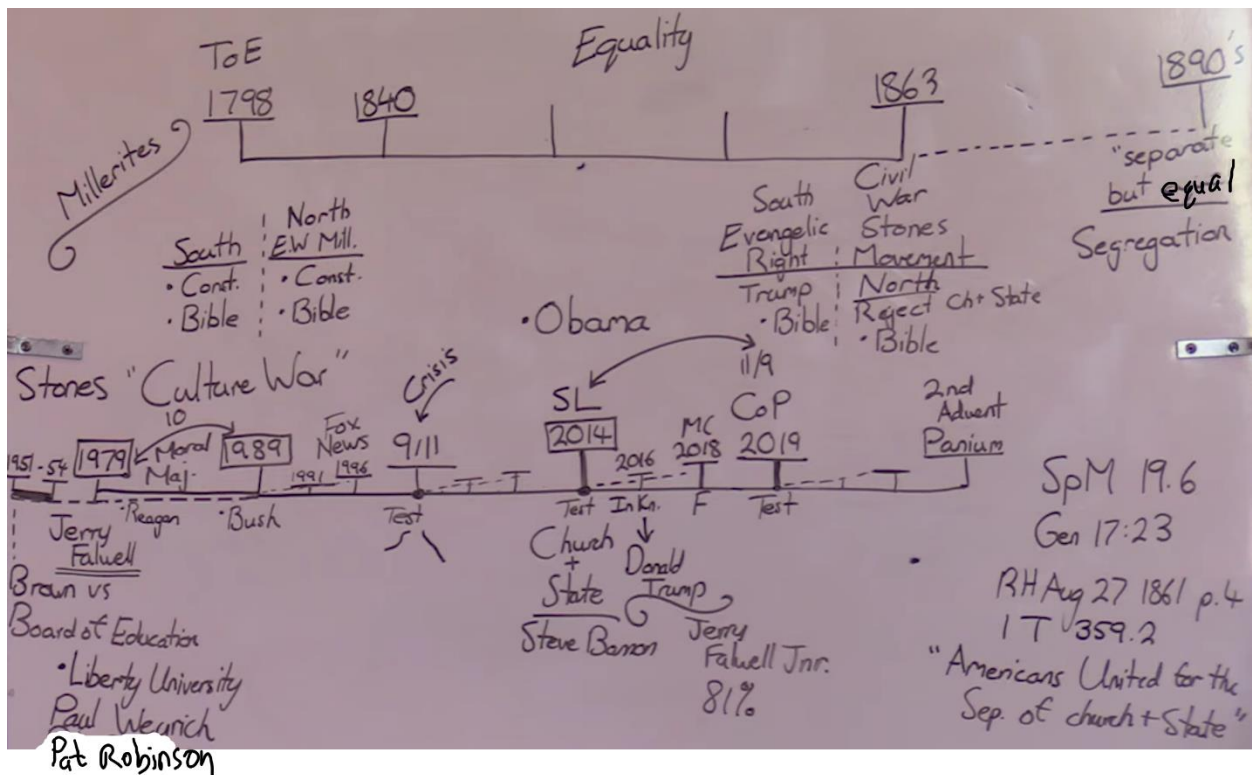 ToE
Equality
1798
1840
1863
1890's
Millerites
"separate
but equal
Segregation
South
• Const.
• Bible
North
E.W Mill.
• Const.
• Bible
South
Evangelic
Right
Trump
• Bible
Civil
War
Stones
Movement
North
Reject Ch + State
• Bible
• Obama
Stones "Culture War"
10
Crisis
11/9
1951-54
1979
Moral
Maj.
1989
1991
Fox
News
1996
9/11
SL
2014
2016
MC
2018
CoP
2019
2nd
Advent
Panium
• Reagan
• Bush
Test
Test
In Kn.
F
Test
Jerry
Falwell
Brown vs
Board of Education
• Liberty University
Paul Weyrich
Pat Robinson
Church
+
State
Steve Bannon
Donald
Trump
Jerry
Falwell Jnr.
81%
SpM 19.6
Gen 17:23
RH Aug 27 1861 p.4
1T 359.2
"Americans United for the
Sep. of church + State"